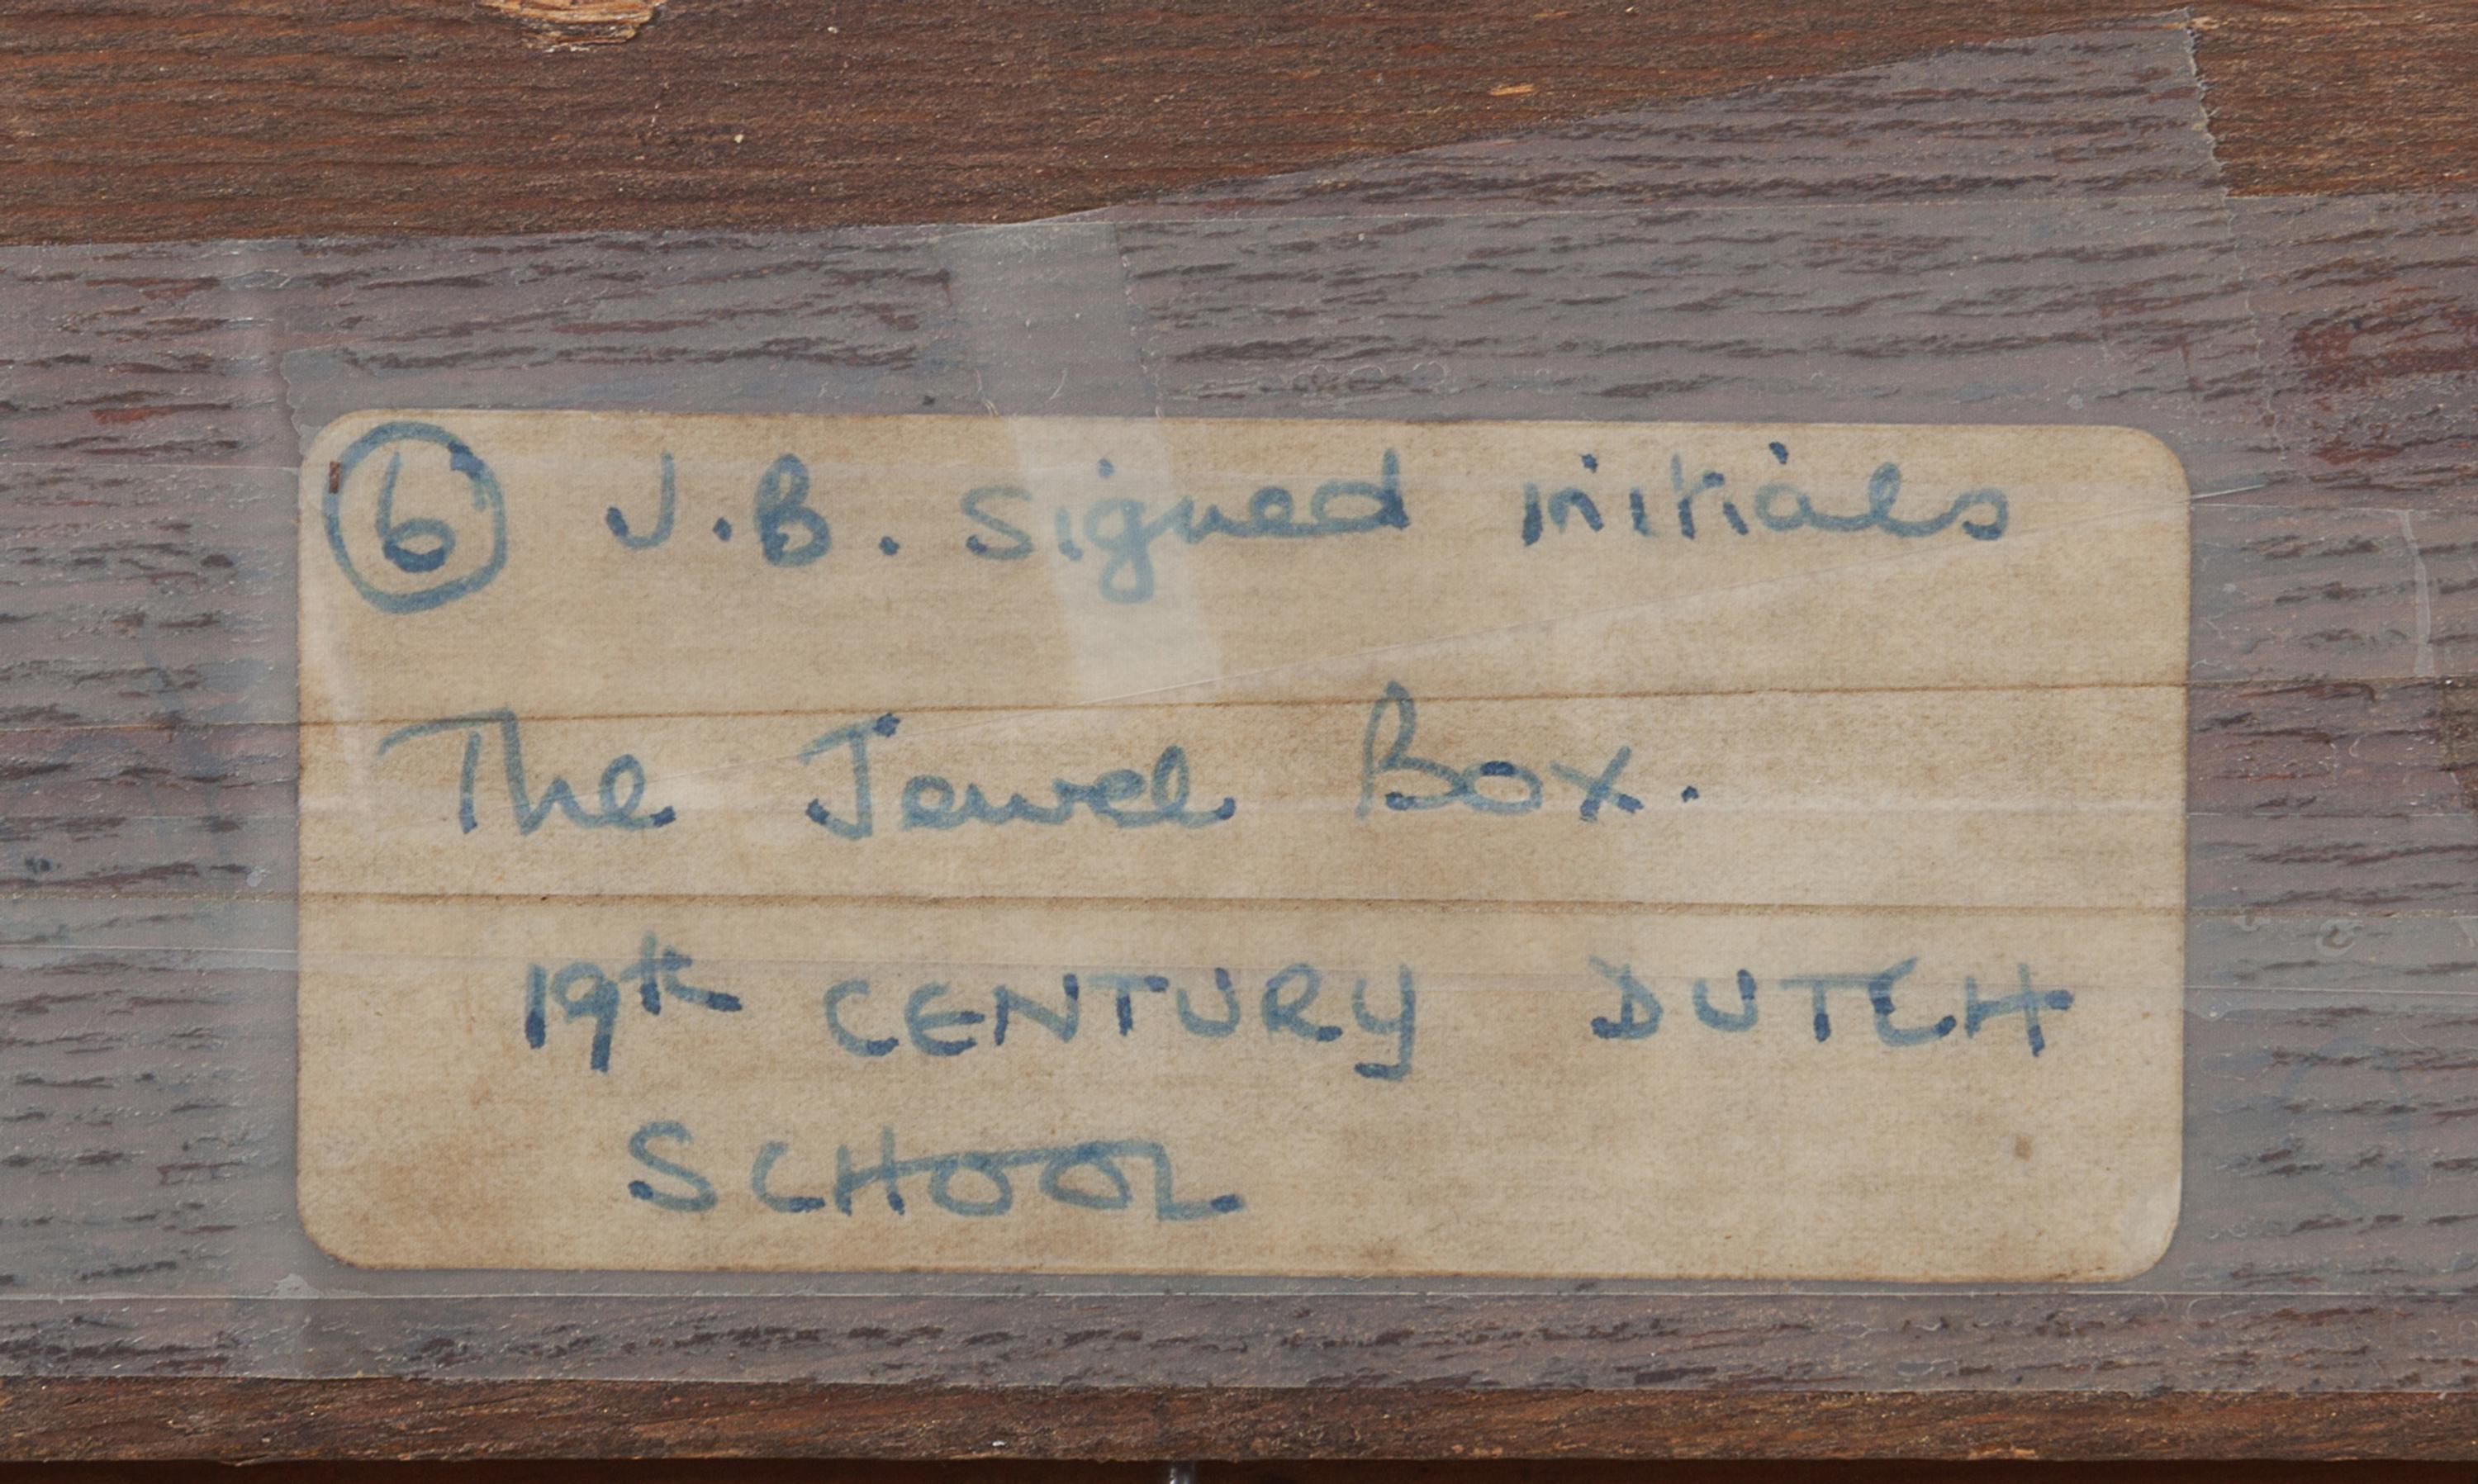 6 J.B. Signed initials
The Jewel Box.
19th CENTURY DUTCH
SCHOOL